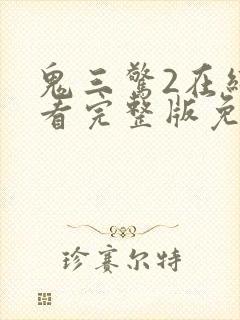 鬼三驚2在
看完整版免
珍赛尔特